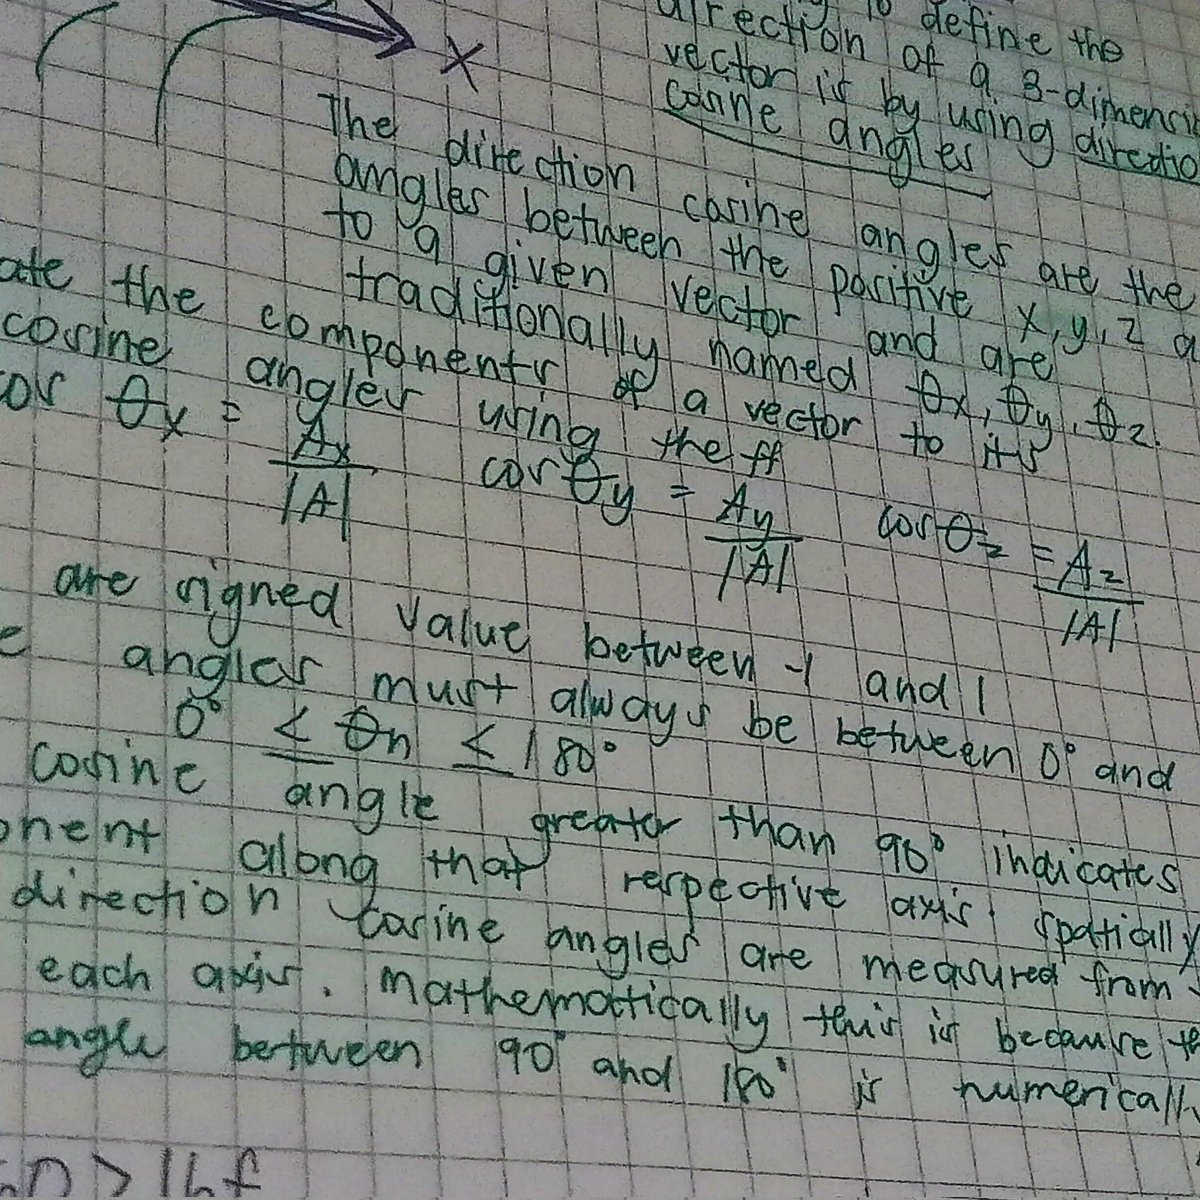 X
to define the
direction of a 3-dimensi
vector is by using directio
cosine angles
The direction cosine angles are the
angles between the positive x, y, z a
to a given vector and are
traditionally named θx, θy, θz.
ate the components of a vector to it's
cosine angles using the ff
cos θx = Ax/|A| cos θy = Ay/|A| cos θz = Az/|A|
are signed value between -1 and 1
angles must always be between 0° and
0° ≤ θn ≤ 180°
cosine angle greater than 90° indicates
onent along that respective axis. spatially
direction cosine angles are measured from
each axis. mathematically this is because th
angle between 90° and 180° is numericall